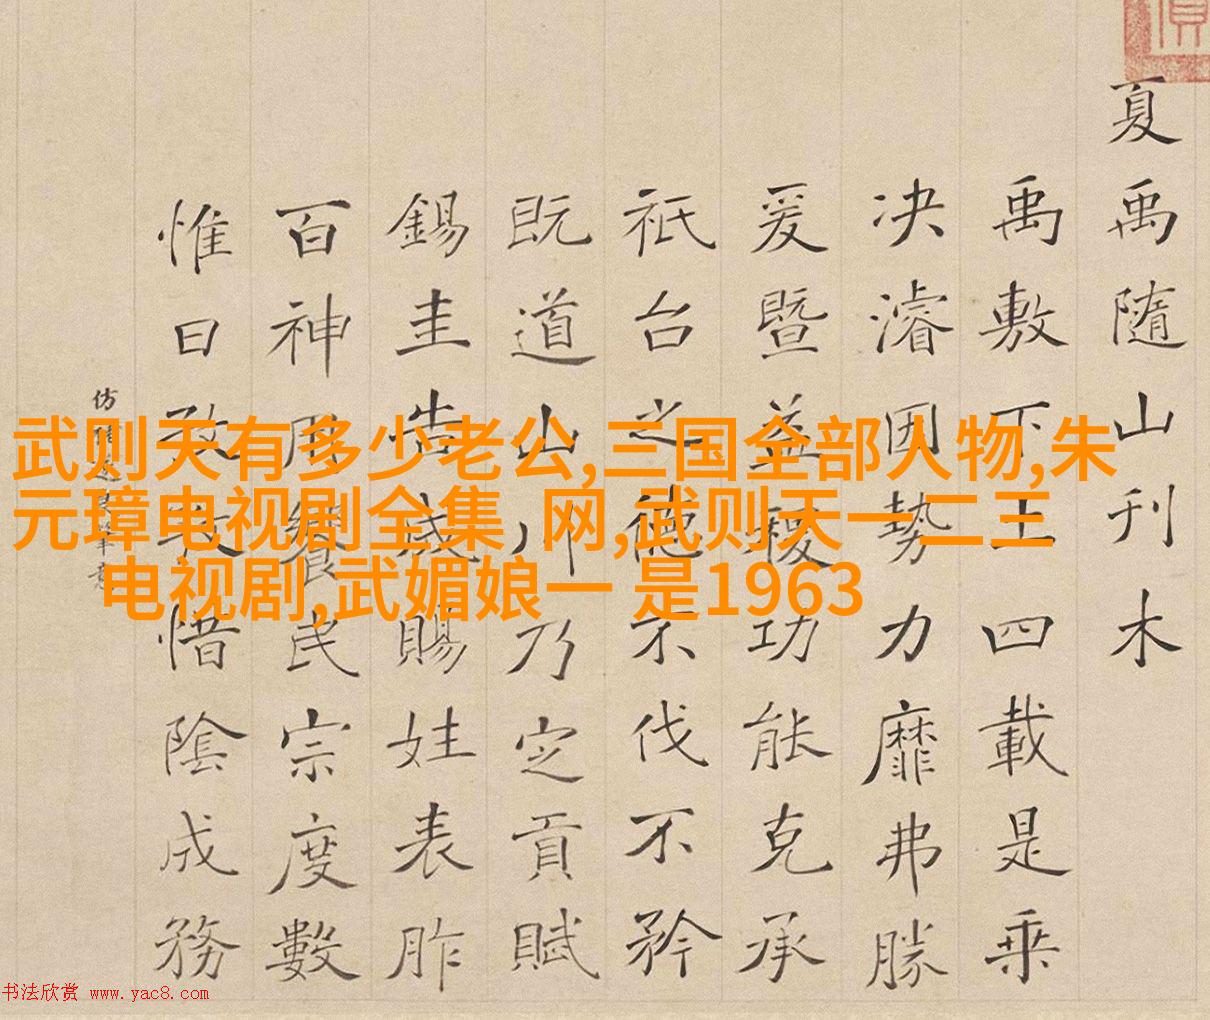 夏禹隨山刊木
禹敷下土四載是乘
决濬因勢力靡弗勝
爰暨益稷功能克承
祇台之德不伐不矜
既道山川乃定貢賦
錫圭告成賜姓表胙
百神用饗民宗度數
惟日孜孜惜陰成務
仿
武则天有多少老公,三国全部人物,朱
元璋电视剧全集 网,武则天一二三
电视剧,武媚娘一 是1963
书法欣赏 www.yac8.com